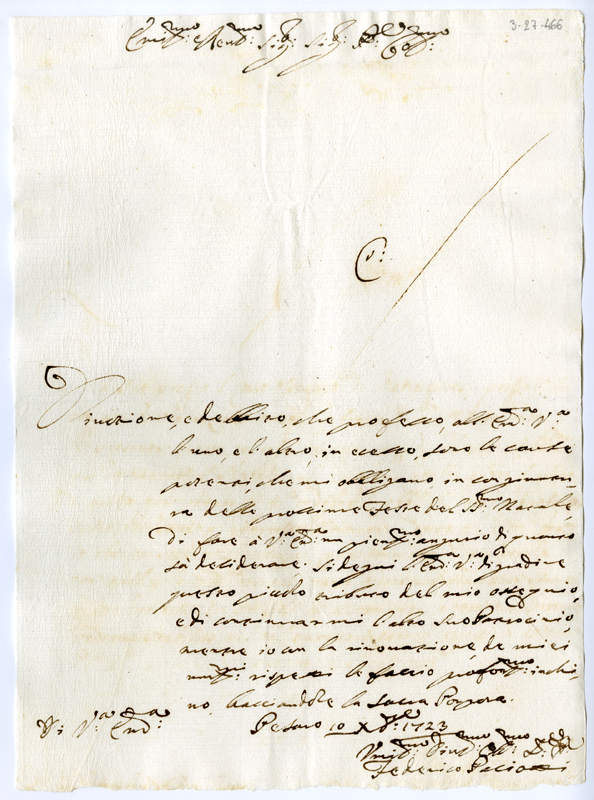 3-27-466
Em.mo e Rev.mo Sig.r Sig.r P.ron Col.mo
La
divozione, e de che professo, all' Em.za V.ra
l'uno, e l'altro, in eccesso, sono le cause
potenti, che mi obbligano, in congiuntu-
ra delle prossime Feste del S.mo Natale,
di fare à V.ra Em.za un pien.mo augurio di quanto
sà desiderare. Si degni l'Em.za V.ra di gradire
questo piccolo tributo del mio ossequio,
e di continuarmi l'alto suo Patrocinio,
mentre io con la rinovazione de miei
um.mi rispetti le faccio profon.mo inchi-
no, bacciandole la Sacra Porpora.
Di V.ra Em.za Pesaro 10 Xbre 1723
Um.mo Div.mo Obb.mo
Federico